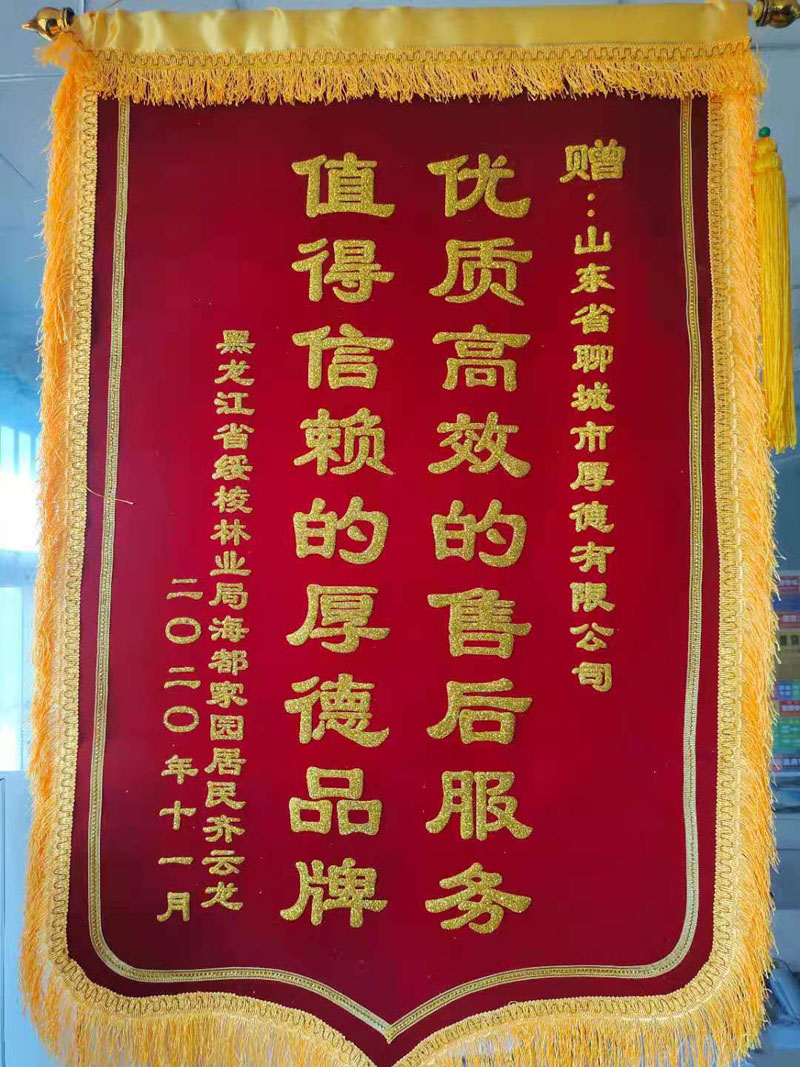 赠:山东省聊城市厚德有限公司
优质高效的售后服务
值得信赖的厚德品牌
黑龙江省绥棱林业局海都家园居民齐云龙
二〇二〇年十一月